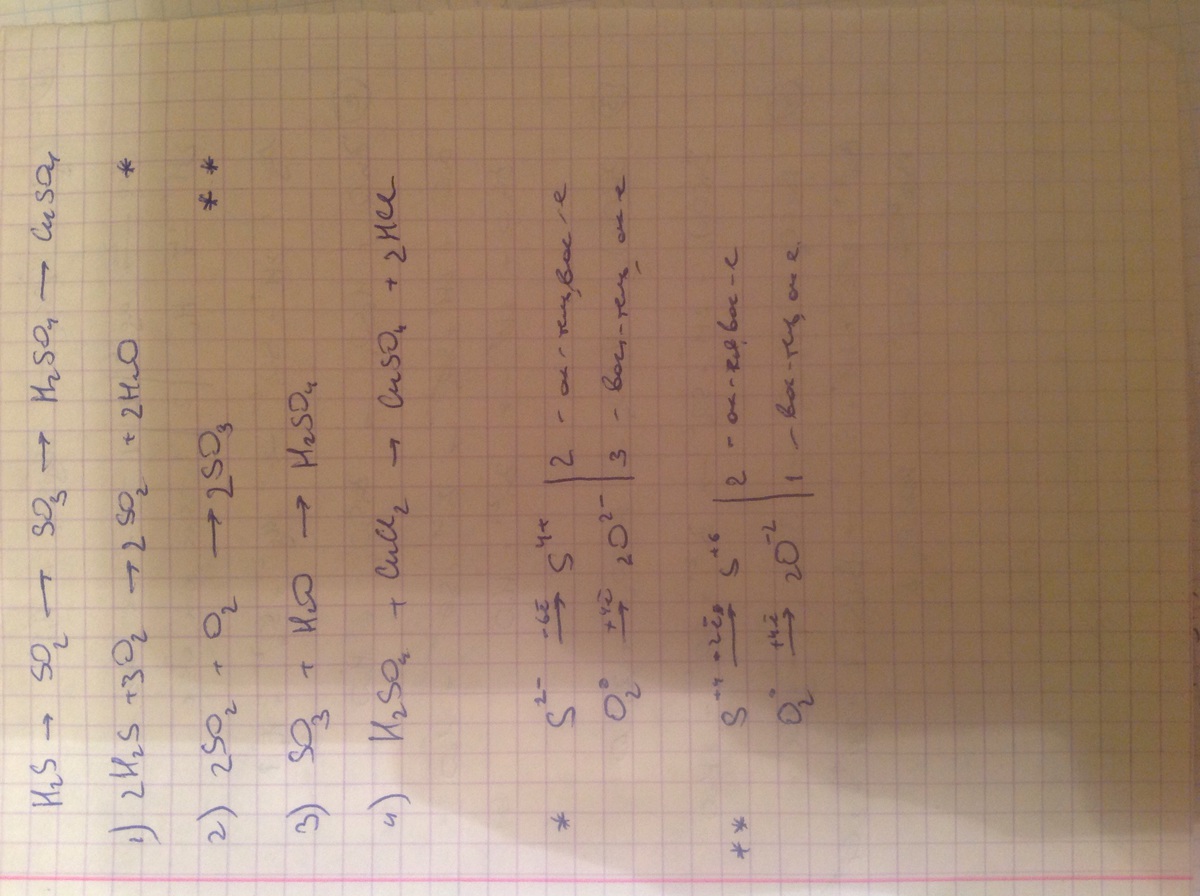 H₂S → SO₂ → SO₃ → H₂SO₄ → CuSO₄
1) 2H₂S + 3O₂ → 2SO₂ + 2H₂O *
2) 2SO₂ + O₂ → 2SO₃ **
3) SO₃ + H₂O → H₂SO₄
4) H₂SO₄ + CuCl₂ → CuSO₄ + 2HCl
* S²⁻ -6ē→ S⁴⁺ | 2 - ок-тель, вос-е
O₂⁰ +4ē→ 2O²⁻ | 3 - вос-тель, ок-е
** S⁺⁴ -2ē→ S⁺⁶ | 2 - ок-ль, вос-е
O₂⁰ +4ē→ 2O⁻² | 1 - вос-тель, ок-е